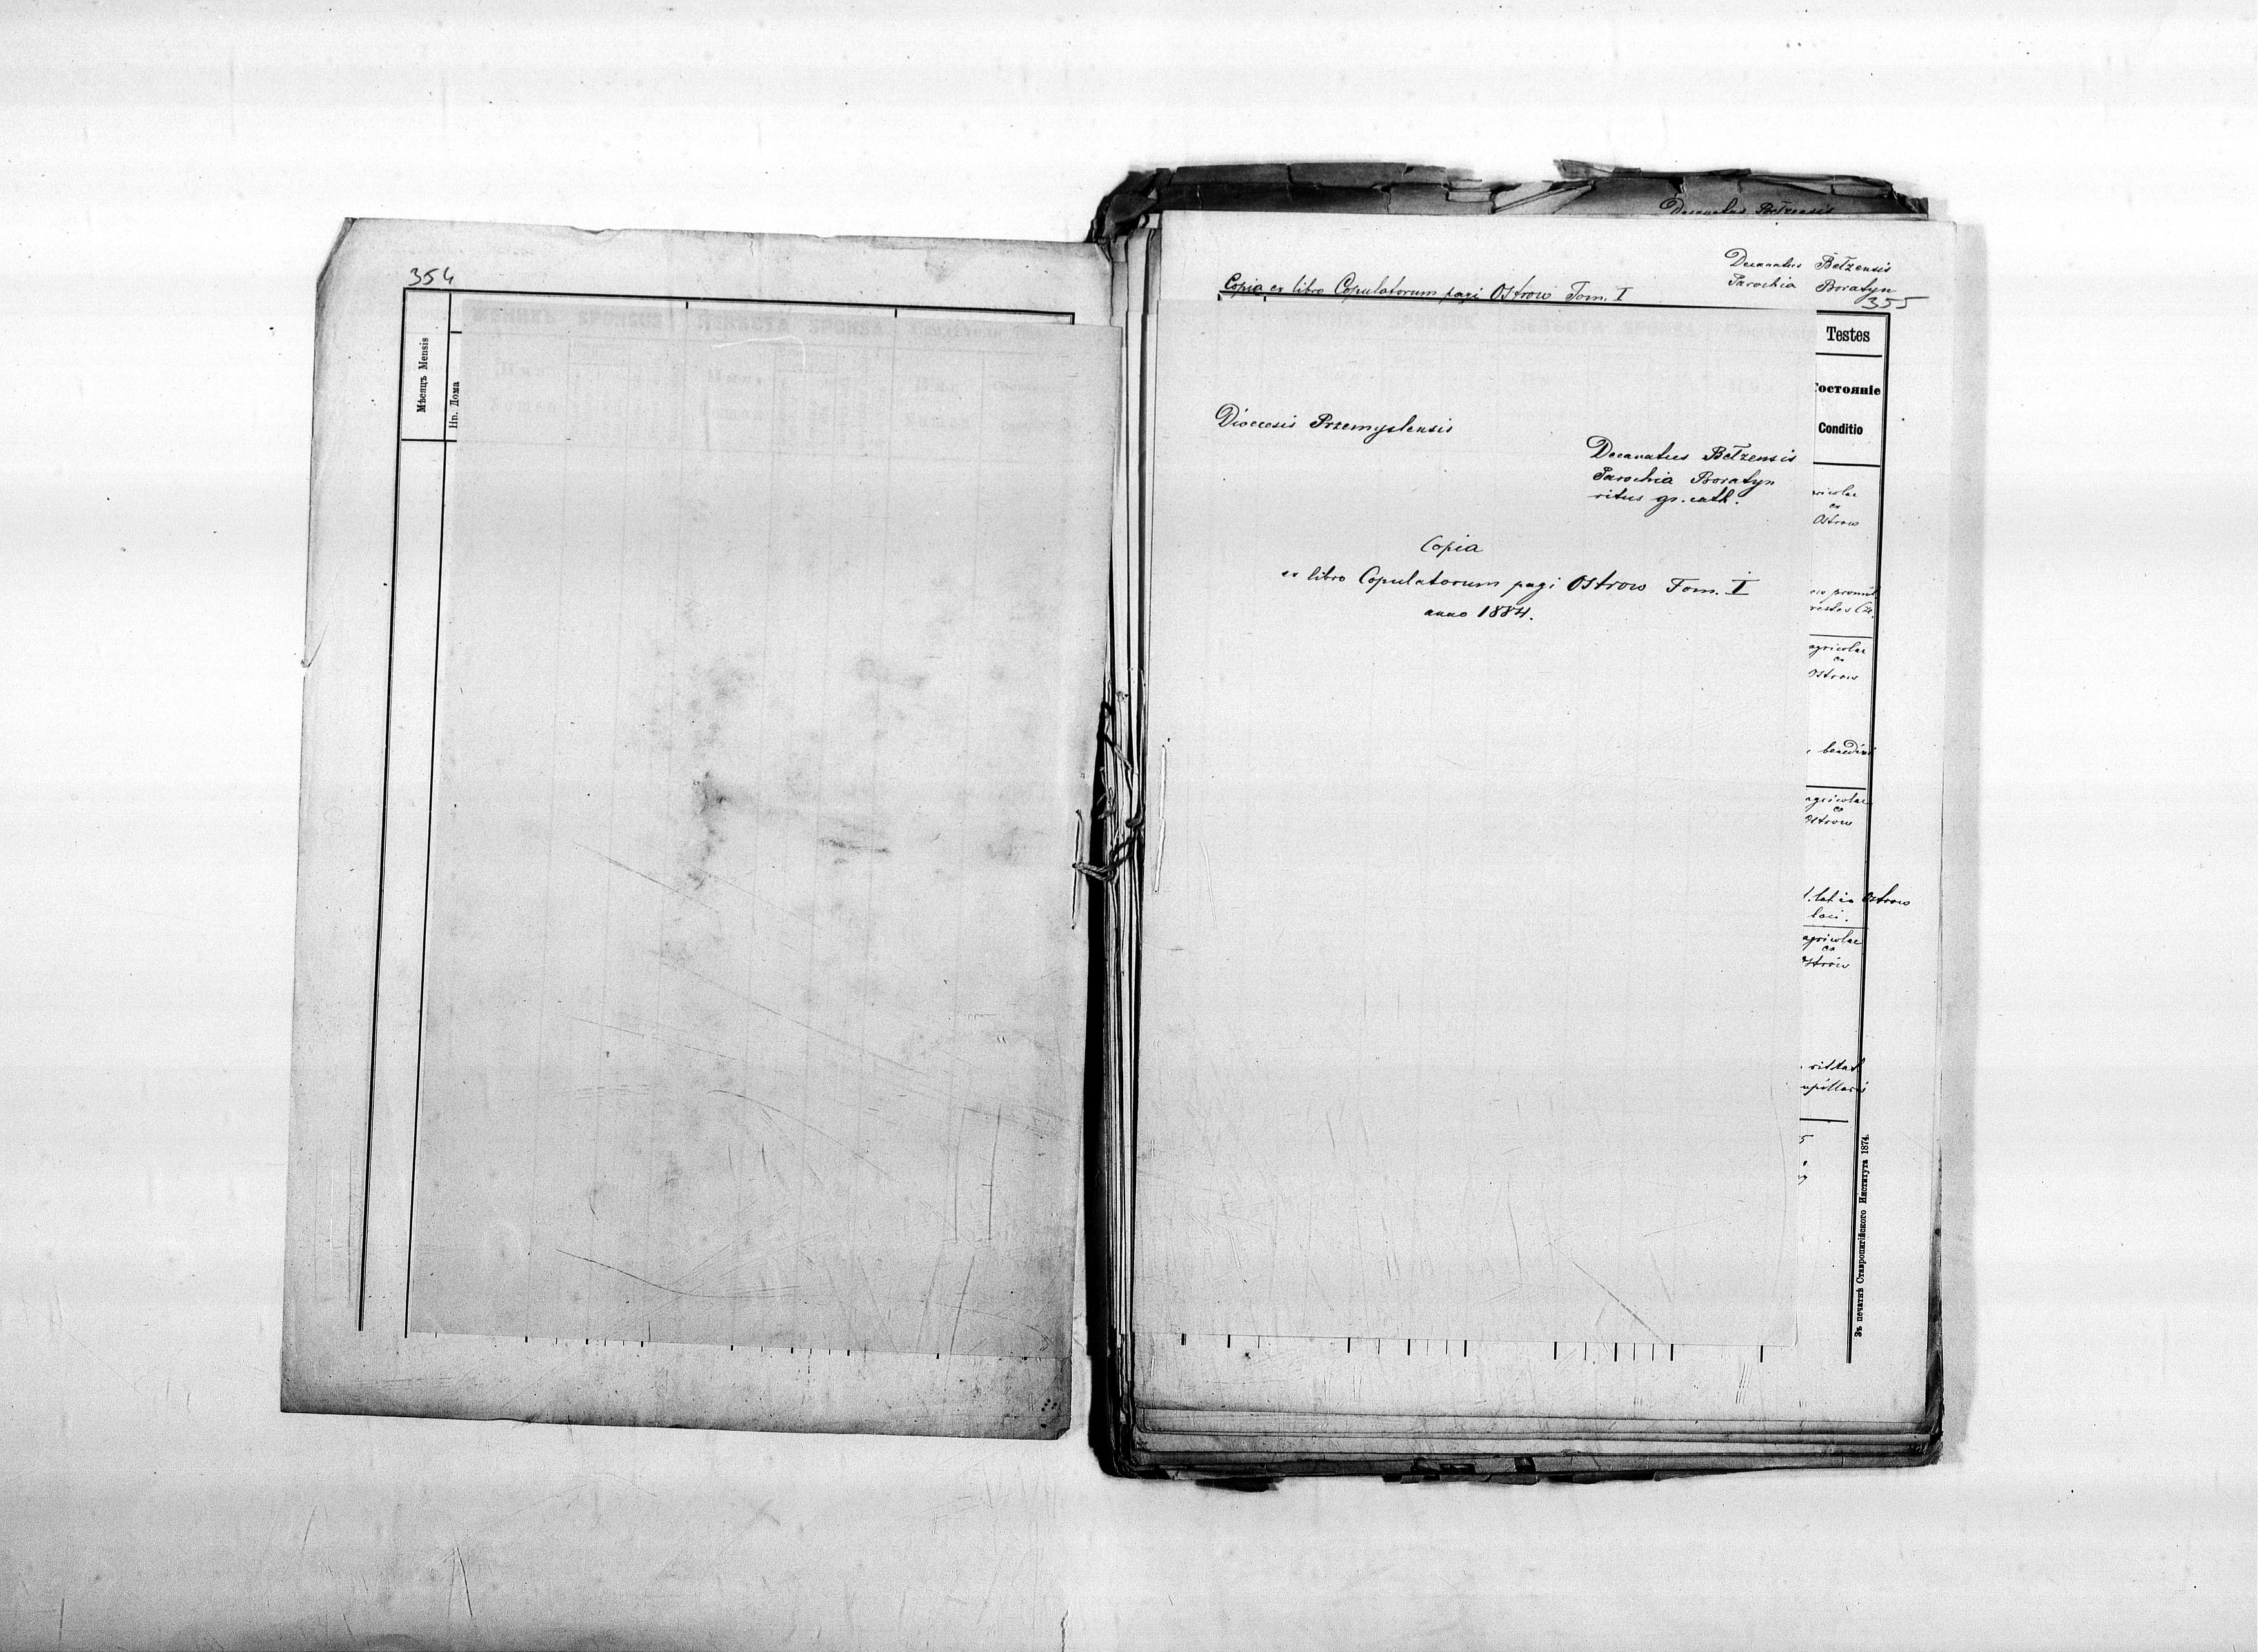 354
Мѣсяцъ Mensis
Нр. Дома
Decanatus Bełzensis
Decanatus Bełzensis
Parochia Boratyn
355
Copia ex libro Copulatorum pagi Ostrow Tom. I
Testes
Состояніе
Conditio
Dioecesis Przemyslensis
Decanatus Bełzensis
Parochia Boratyn
ritus gr. cath.
Copia
ex libro Copulatorum pagi Ostrow Tom. I
anno 1884.
ex
Ostrow
agricolae
ex
Ostrow
agricolae
ex
Ostrow
Ostrow
loci.
agricolae
ex
Ostrow
Зъ печатнѣ Ставропигійского Института 1874.